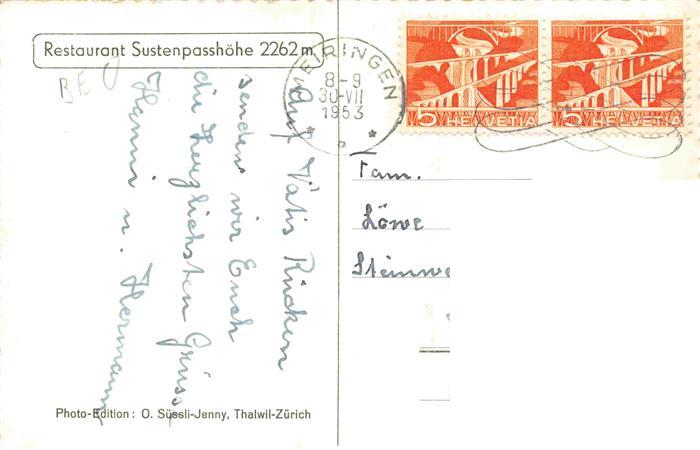 Restaurant Sustenpasshöhe 2262 m
BE
Auf Vatis Rücken
senden wir Euch
die herzlichsten Grüsse
Hanni u. Hermann
Photo-Edition: O. Süssli-Jenny, Thalwil-Zürich
MEIRINGEN
8-9
30-VII
1953
5 HELVETIA
5 HELVETIA
Fam.
Löwe
Steinwe